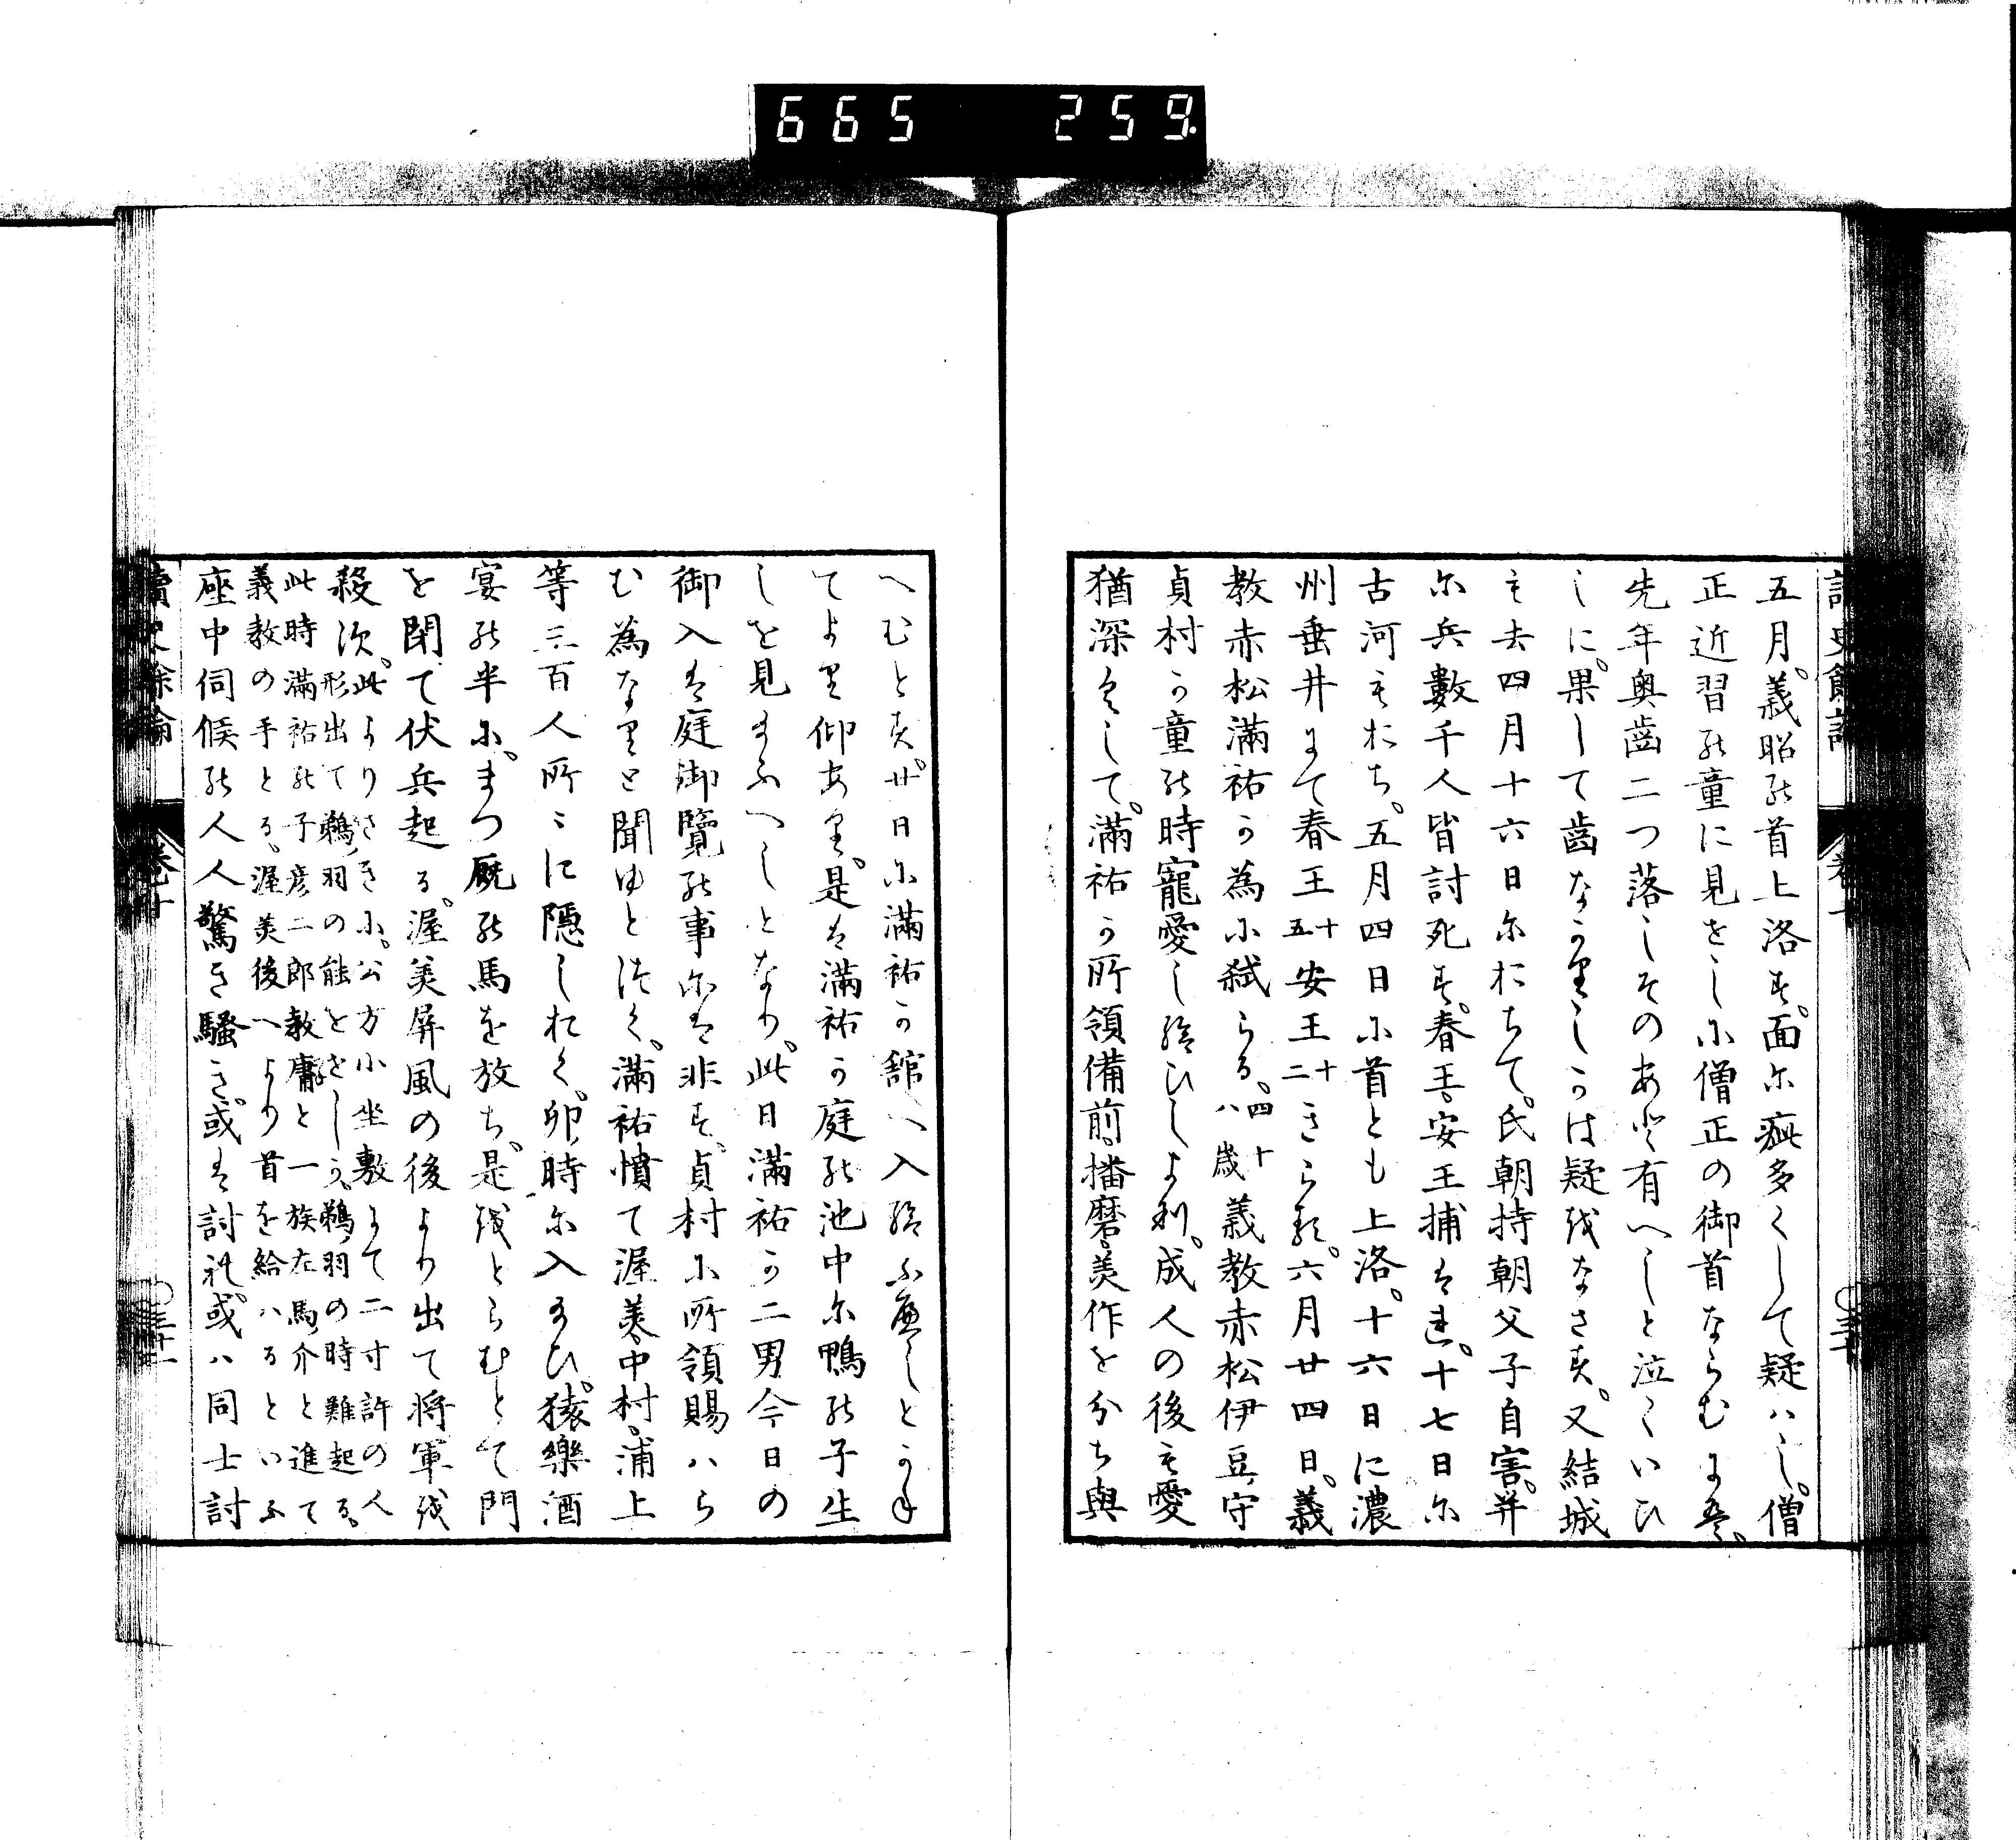 665 259
五月。義昭の首上洛す。面に疵多くして疑ハし。僧
正近習の童に見せしに僧正の御首ならむよそ。
先年奥歯二つ落しそのあと有へしと泣くいひ
しに。果して歯なかりしかは疑をなさす。又結城
も去四月十六日におちて。氏朝持朝父子自害。并
に兵數千人皆討死す。春王。安王捕はれ。十七日に
古河もおち。五月四日に首とも上洛。十六日に濃
州垂井まて春王十五安王十二きらる。六月廿四日。義
教赤松滿祐か為に弑らる。四十八歳義教赤松伊豆守
貞村か童の時寵愛し給ひしより。成人の後も愛
猶深くして。滿祐か所領備前。播磨。美作を分ち與
へむとす。廿日に滿祐か舘へ入給ふへしとかね
てより仰あり。是は滿祐か庭の池中に鴨の子生
しを見まふへしとなり。此日滿祐か二男今日の
御入は庭御覽の事には非す。貞村に所領賜ハら
む為なりと聞ゆとつく。滿祐憤て渥美。中村。浦上
等三百人所々に隠しおく。卯時に入まひ。猿樂酒
宴の半に。まつ厩の馬を放ち。是をとらむとて門
を閉て伏兵起る。渥美屏風の後より出て将軍を
殺次。此よりさきに。公方小坐敷まて二寸許の人
形出て鵜羽の能をさしか。鵜羽の時難起る。
此時滿祐の子彦二郎教庸と一族左馬介と進て
義教の手とる。渥美後へより首を給ハるといふ
座中伺候の人人驚き騷き。或は討れ。或ハ同士討
讀史餘論
巻十
三十一